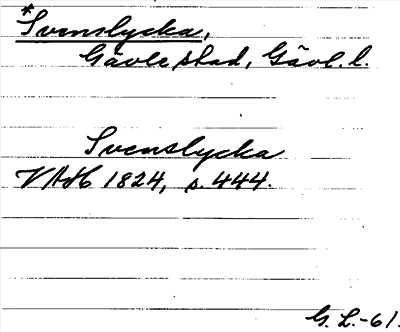 *Svenslycka,
Gävle stad, Gävl. l.
Svenslycka
VAH 1824, s. 444.
G. L.-61.